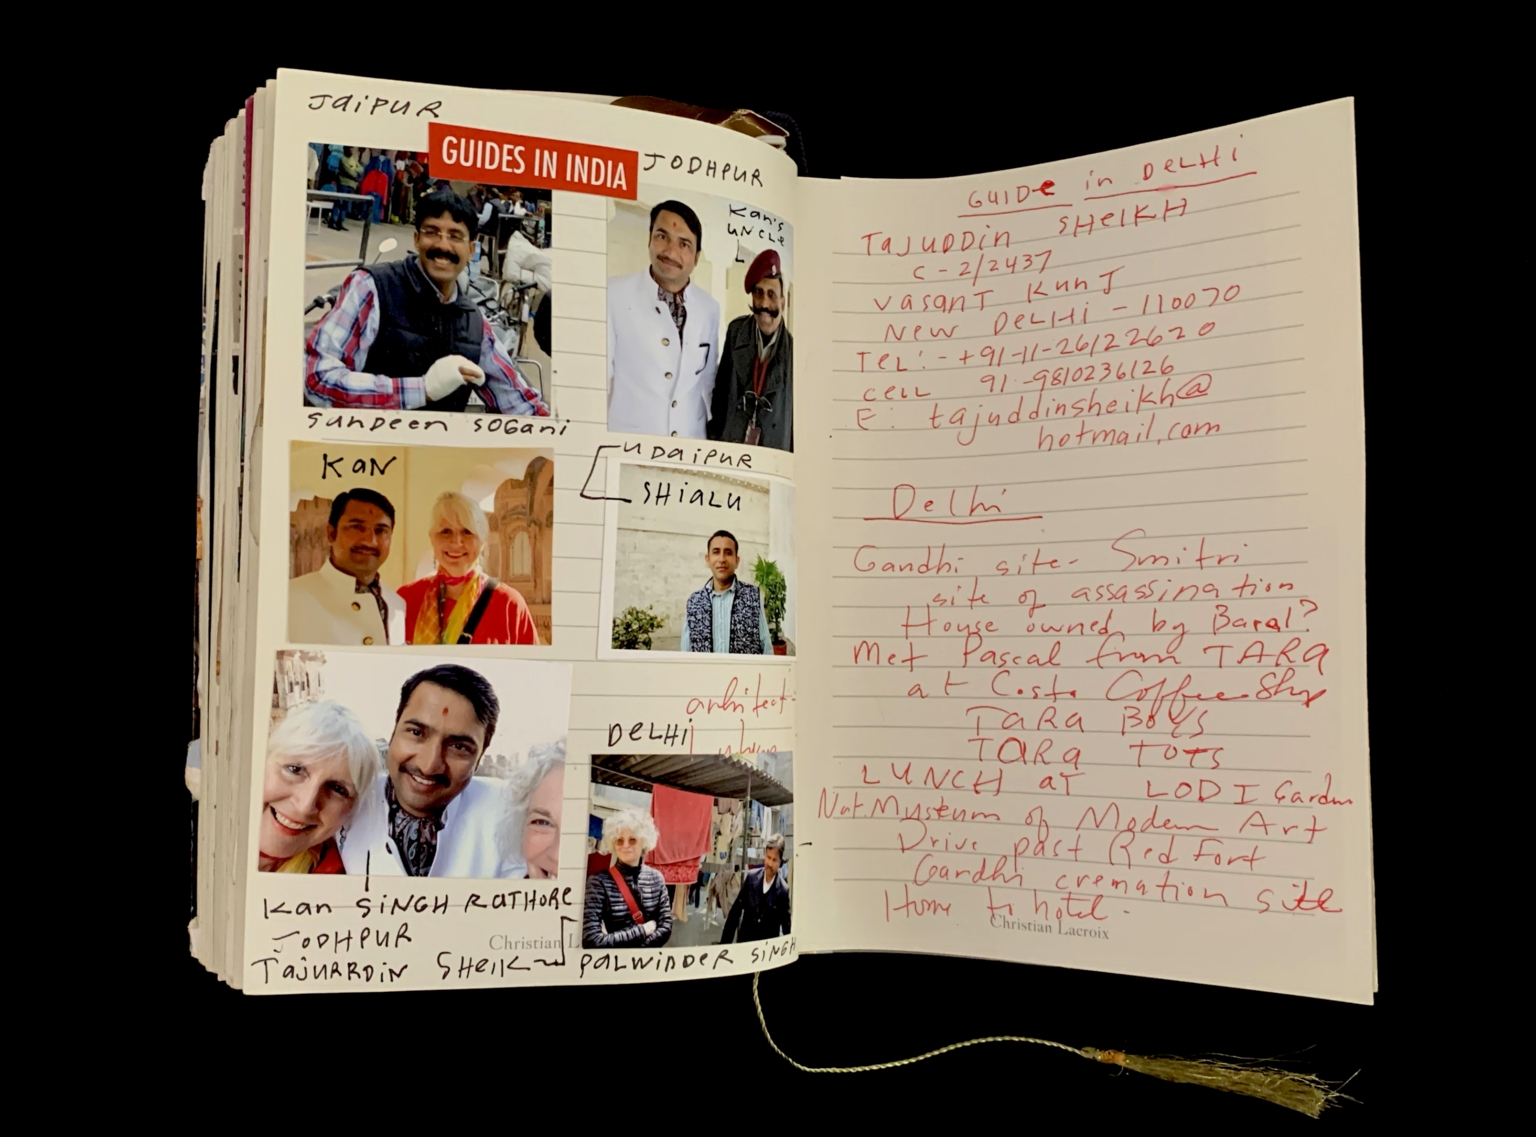 Jaipur
GUIDES IN INDIA
JODHPUR
Kan's
uncle
sundeen soGani
KaN
UDaipur
SHiaLu
DeLHi
Kan SiNGH RATHORE
JODHPUR
TajuRRDiN SHeik
paLWiNDeR SiNGH
Christian L
GUIDe in DeLHi
TaJuDDin SHeIKH
C-2/2437
VasanT KunJ
New DeLHi - 110070
TeL:- +91-11-26122620
ceLL 91-9810236126
E: tajuddinsheikh@
hotmail.com
Delhi
Gandhi site - Smitri
site of assassination
House owned by
Met Pascal from TARa
at Costa Coffee Shop
TaRa Boys
TaRa ToTs
LUNCH aT LODI Garden
Nat. Myseum of Modern Art
Drive past Red Fort
Gandhi cremation site
Home to hotel -
Christian Lacroix